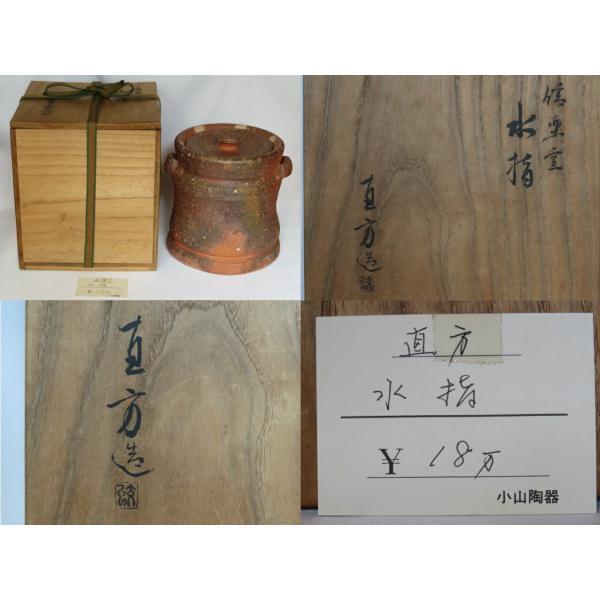 信楽窯
水指
直方造
直方造
直方
水指
¥18万
小山陶器